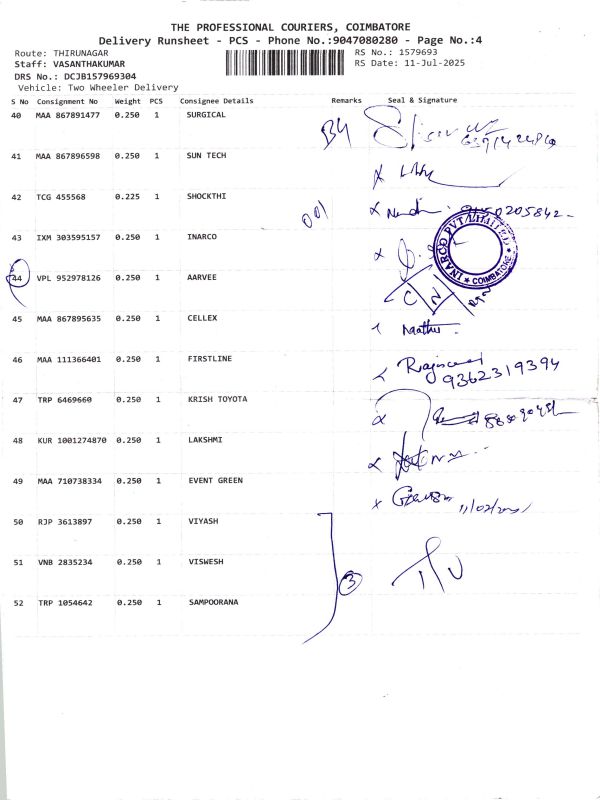 THE PROFESSIONAL COURIERS, COIMBATORE
Delivery Runsheet - PCS - Phone No.:9047080280 - Page No.:4
Route: THIRUNAGAR RS No.: 1579693
Staff: VASANTHAKUMAR RS Date: 11-Jul-2025
DRS No.: DCJB157969304
Vehicle: Two Wheeler Delivery
S No Consignment No Weight PCS Consignee Details Remarks Seal & Signature
40 MAA 867891477 0.250 1 SURGICAL
41 MAA 867896598 0.250 1 SUN TECH
42 TCG 455568 0.225 1 SHOCKTHI
001
43 IXM 303595157 0.250 1 INARCO
INARCO PVT LIMITED
COIMBATORE
44 VPL 952978126 0.250 1 AARVEE
45 MAA 867895635 0.250 1 CELLEX
46 MAA 111366401 0.250 1 FIRSTLINE
9362319394
47 TRP 6469660 0.250 1 KRISH TOYOTA
48 KUR 1001274870 0.250 1 LAKSHMI
49 MAA 710738334 0.250 1 EVENT GREEN
50 RJP 3613897 0.250 1 VIYASH
51 VNB 2835234 0.250 1 VISWESH
3
52 TRP 1054642 0.250 1 SAMPOORANA